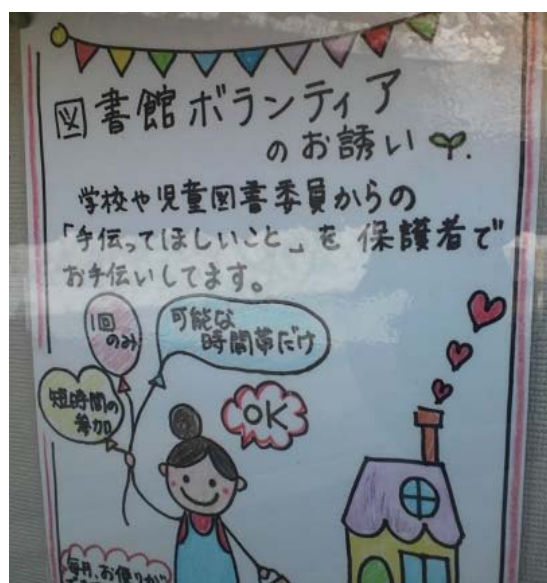 図書館ボランティア
のお誘い
学校や児童図書委員からの
「手伝ってほしいこと」を保護者で
お手伝いしてます。
1回
のみ
可能な
時間帯だけ
短時間の
参加
OK
毎月、お便りが